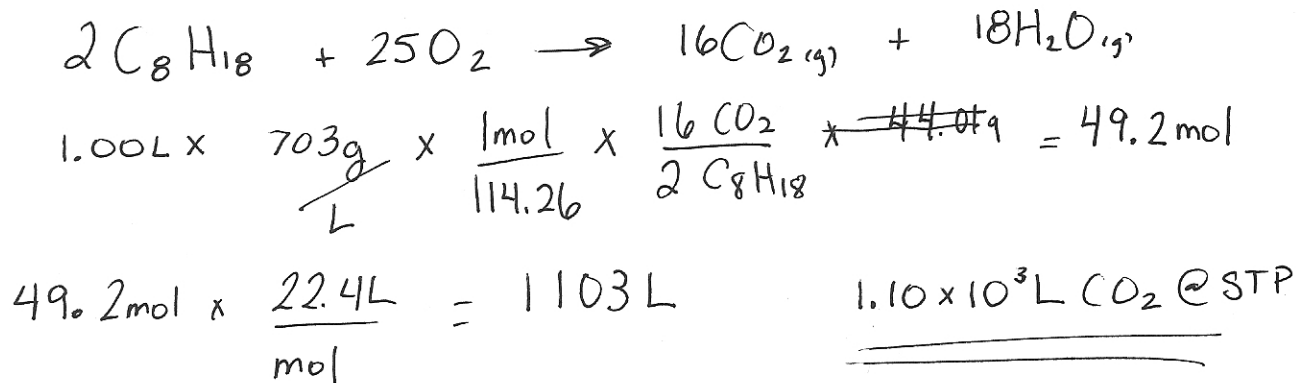 2 C₈H₁₈ + 25O₂ → 16CO₂(g) + 18H₂O(g)
1.00L x 703g/L x 1mol/114.26 x 16 CO₂/2 C₈H₁₈ * 44.01g = 49.2 mol
49.2mol x 22.4L/mol = 1103 L 1.10 x 10³ L CO₂ @ STP